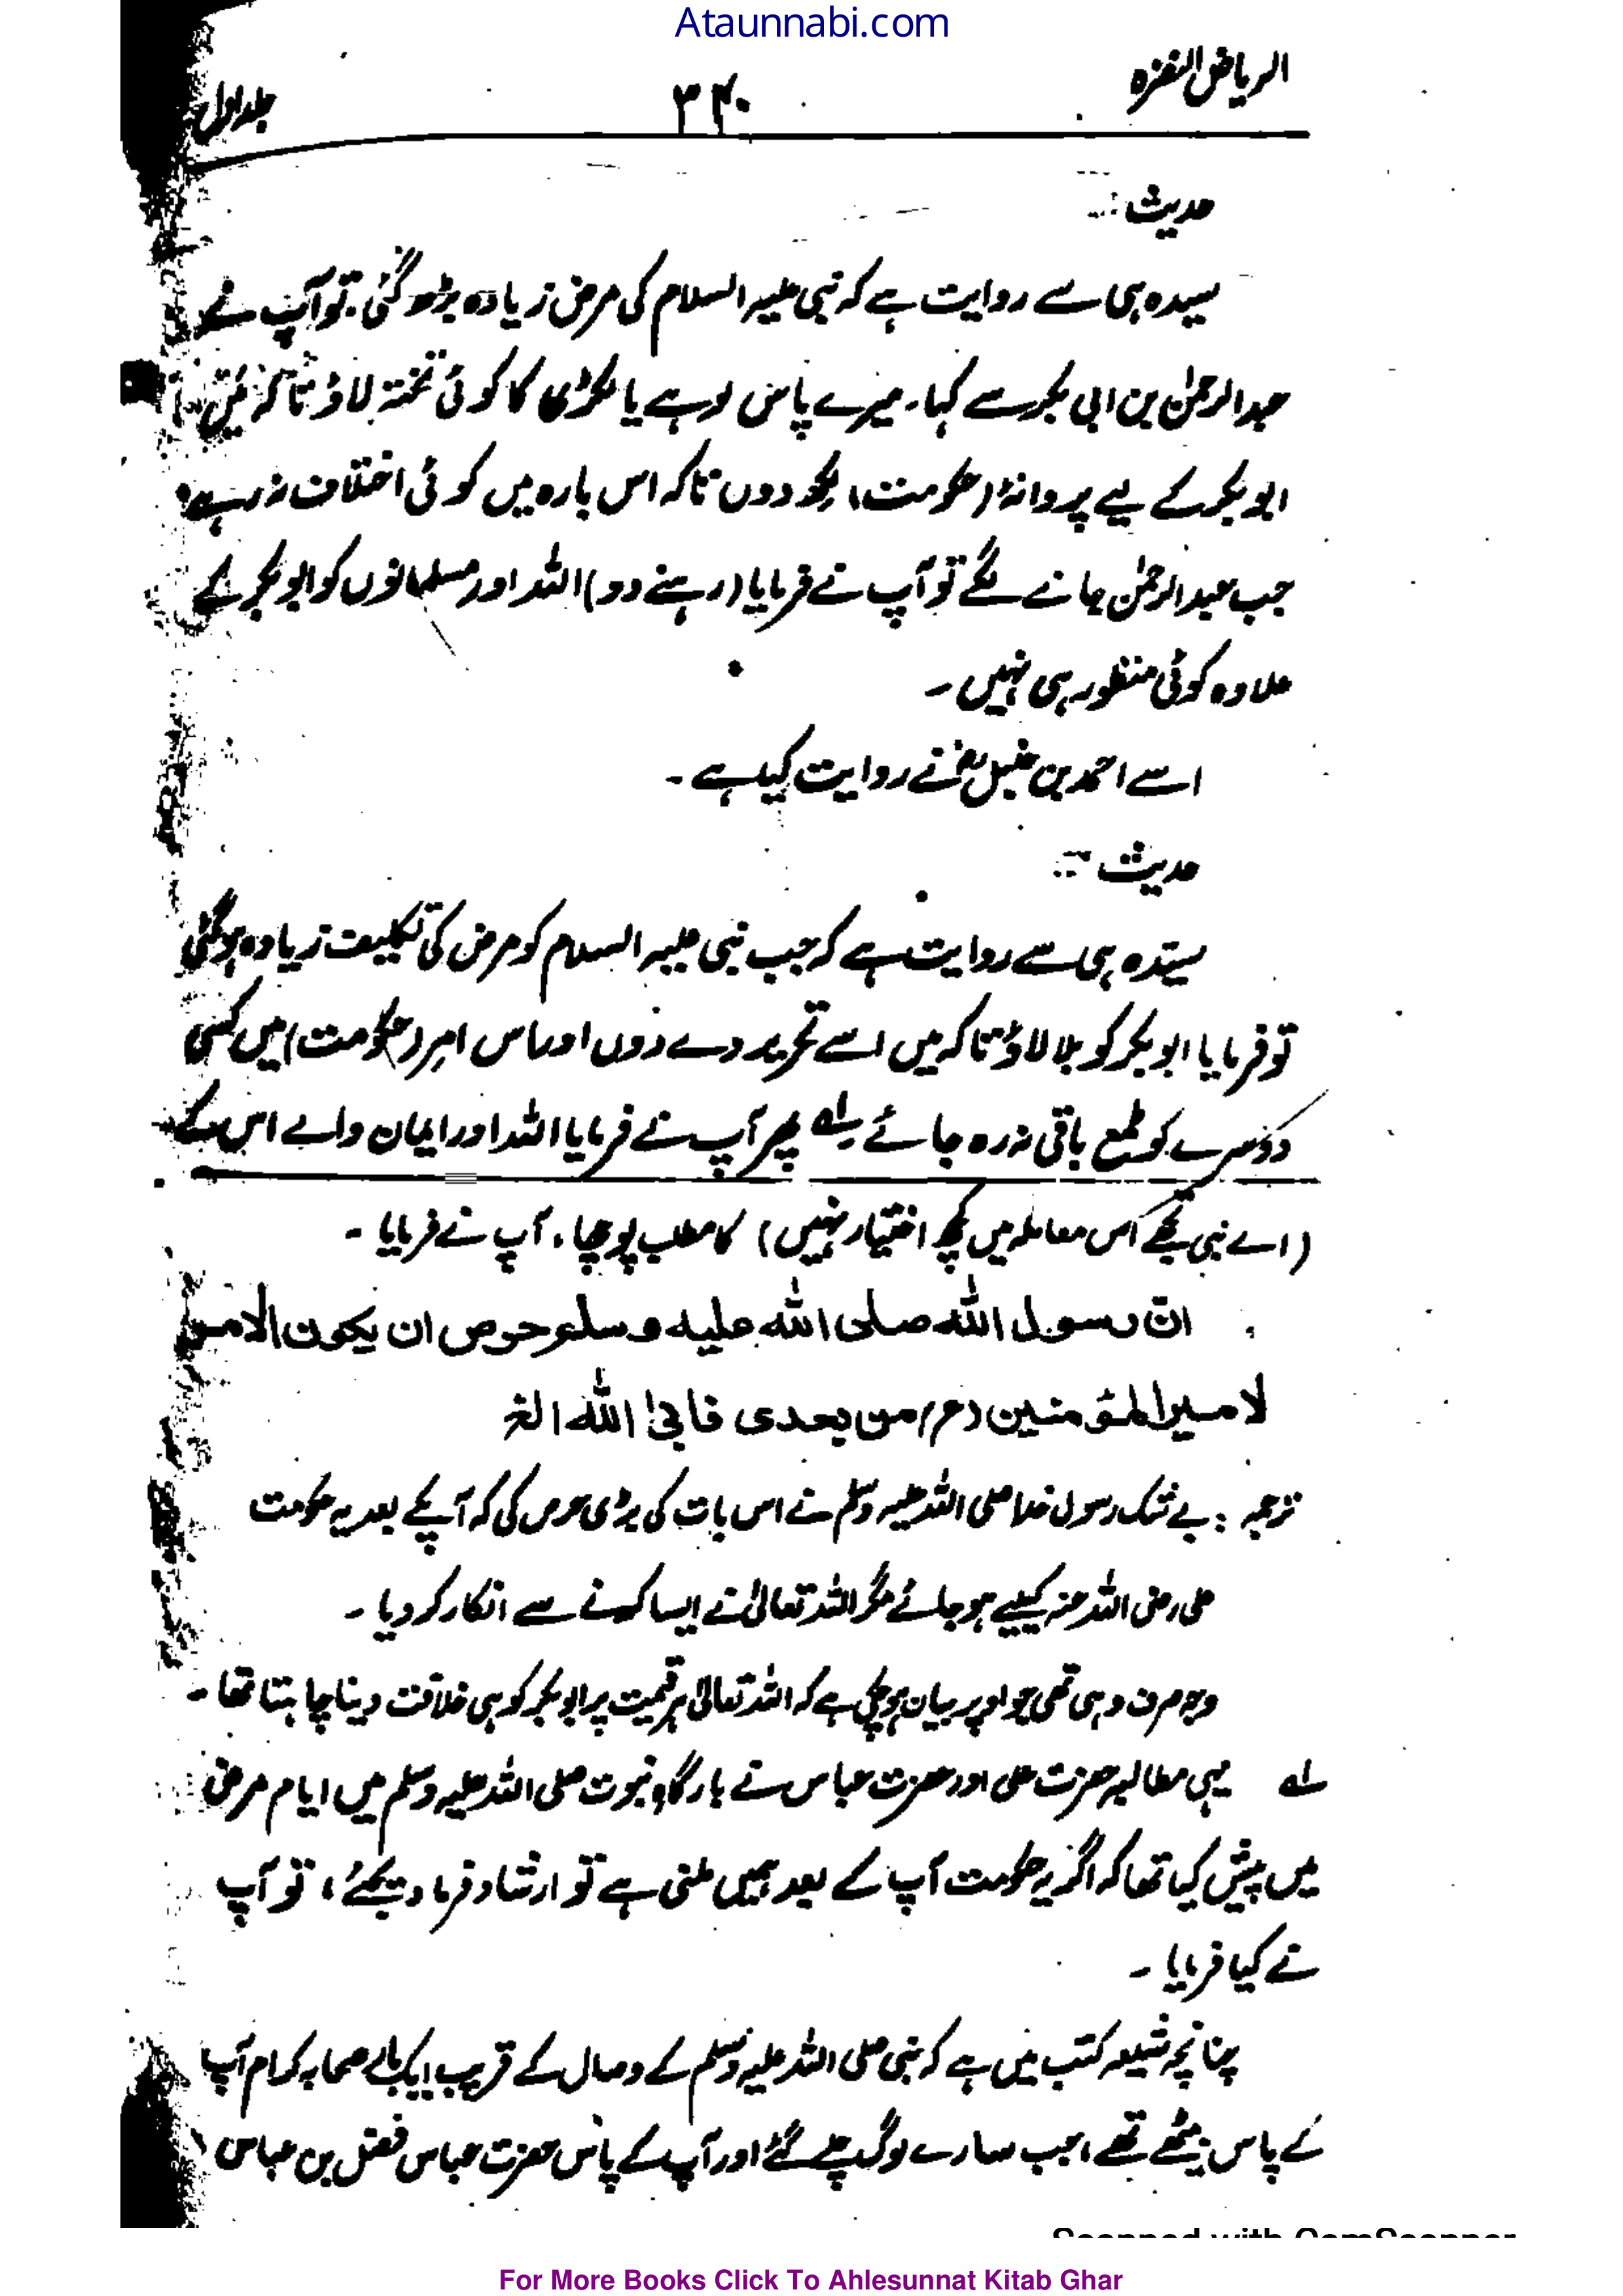 Ataunnabi.com
الریاض النضرہ ۳۴۰ جلد اول
حدیث :۔
سیدہ ہی سے روایت ہے کہ نبی علیہ السلام کی مرض زیادہ بڑھ گئی۔ تو آپ نے
عبدالرحمٰن بن ابی بکر سے کہا۔ میرے پاس لوہے یا لکڑی کا کوئی تختہ لاؤ تاکہ میں
ابوبکر کے لیے پروانۂ (حکومت) لکھ دوں تاکہ اس بارہ میں کوئی اختلاف نہ رہے۔
جب عبدالرحمٰن جانے لگے تو آپ نے فرمایا (رہنے دو) اللہ اور مسلمانوں کو ابوبکر کے
علاوہ کوئی منظور ہی نہیں۔
اسے احمد بن حنبل نے روایت کیا ہے۔
حدیث :۔
سیّدہ ہی سے روایت ہے کہ جب نبی علیہ السلام کو مرض کی تکلیف زیادہ ہوگئی
تو فرمایا ابوبکر کو بلا لاؤ تاکہ میں اسے تحریر دے دوں اور اس امر (حکومت) میں کسی
دوسرے کو طمع باقی نہ رہ جائے لہ پھر آپ نے فرمایا اللہ اور ایمان والے اس کے
(اے نبی تجھے اس معاملہ میں کچھ اختیار نہیں) کا مطلب پوچھا، آپ نے فرمایا۔
ان رسول اللہ صلی اللہ علیہ وسلم حرص ان یکون الامر
لامیر المؤمنین (ع) من بعدی فابیٰ اللہ الخ
ترجمہ : بے شک رسول خدا صلی اللہ علیہ وسلم نے اس بات کی بڑی حرص کی کہ آپکے بعد یہ حکومت
علی رضی اللہ عنہ کیلیے ہو جائے مگر اللہ تعالیٰ نے ایسا کرنے سے انکار کر دیا۔
وجہ صرف وہی تھی جو اوپر بیان ہو چکی ہے کہ اللہ تعالیٰ ہر قیمت پر ابوبکر کو ہی خلافت دینا چاہتا تھا۔
لہ یہی مطالبہ حضرت علی اور حضرت عباس نے بارگاہِ نبوت صلی اللہ علیہ وسلم میں ایام مرض
میں پیش کیا تھا کہ اگر یہ حکومت آپ کے بعد ہمیں ملنی ہے تو ارشاد فرما دیجئے، تو آپ
نے کیا فرمایا۔
چنانچہ شیعہ کتب میں ہے کہ نبی صلی اللہ علیہ وسلم کے وصال کے قریب ایک بار صحابہ کرام آپ
کے پاس بیٹھے تھے، جب سارے لوگ چلے گئے اور آپ کے پاس حضرت عباس فضل بن عباس
For More Books Click To Ahlesunnat Kitab Ghar